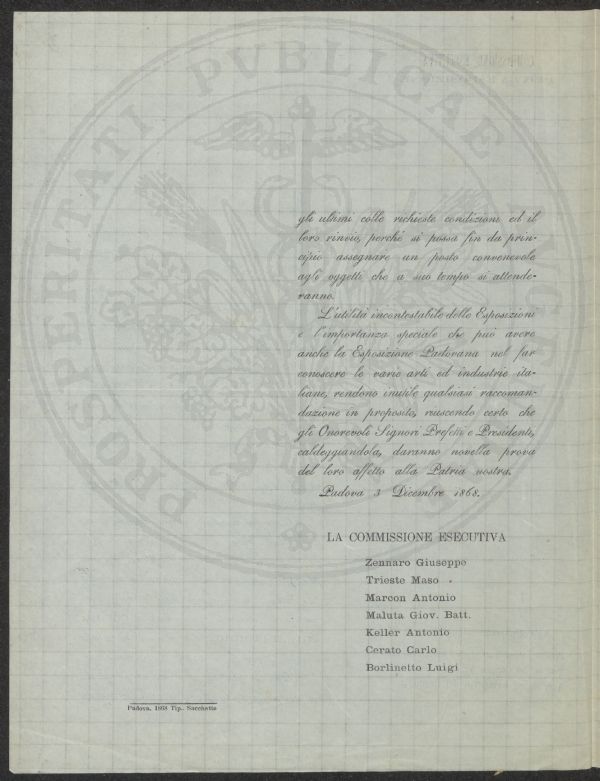 PVBLICAE
gli ultimi colle richieste condizioni ed il
loro rinvio, perché si possa fin da prin-
cipio assegnare un posto convenevole
agli oggetti che a suo tempo si attende-
ranno.
L'utilità incontestabile delle Esposizioni
e l'importanza speciale che può avere
anche la Esposizione Padovana nel far
conoscere le varie arti ed industrie ita-
liane, rendono inutile qualsiasi raccoman-
dazione in proposito, riuscendo certo che
gli Onorevoli Signori Prefetti e Presidenti,
caldeggiandola, daranno novella prova
del loro affetto alla Patria nostra.
Padova 3 Dicembre 1868.
LA COMMISSIONE ESECUTIVA
Zennaro Giuseppe
Trieste Maso
Marcon Antonio
Maluta Giov. Batt.
Keller Antonio
Cerato Carlo
Borlinetto Luigi
Padova, 1868 Tip. Sacchetto